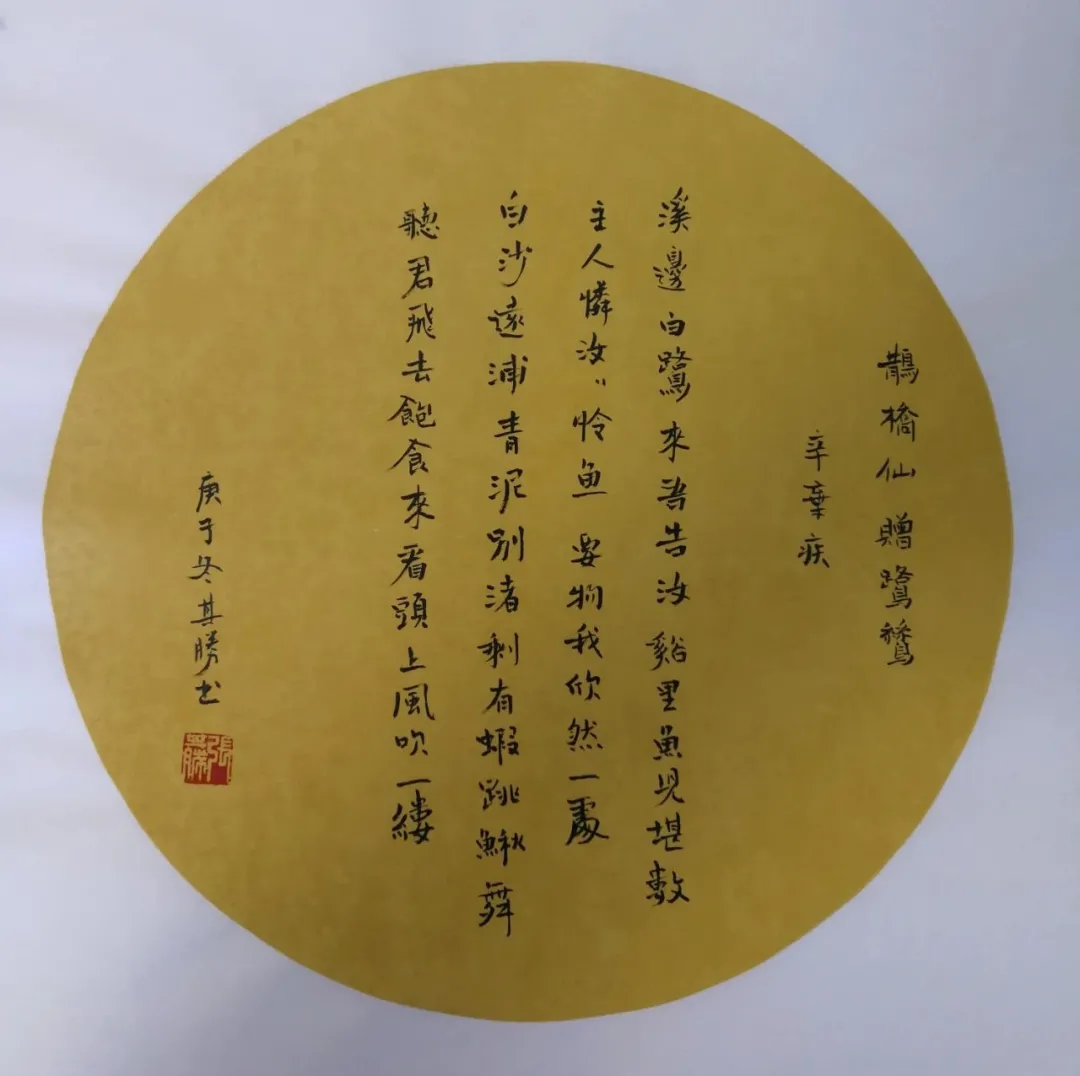 鵲橋仙贈鷺鷥
辛棄疾
溪邊白鷺來吾告汝谿里魚児堪數
主人憐汝〃怜鱼要物我欣然一處
白沙遠浦青泥別渚剩有蝦跳鰍舞
聽君飛去飽食來看頭上風吹一縷
庚子冬其勝书
張其勝